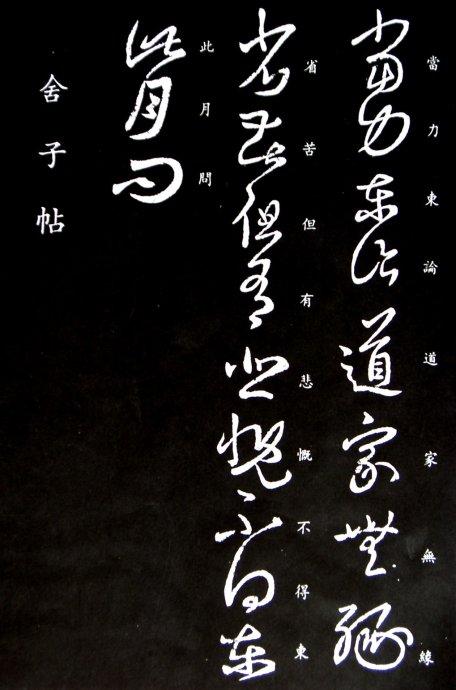 當力東論道家無緣
省苦但有悲慨不得東
此月問
舍子帖